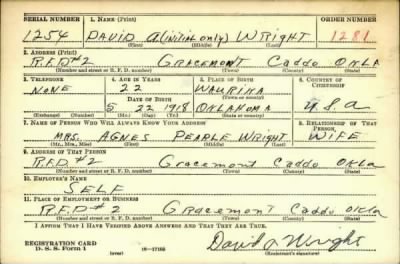 SERIAL NUMBER 1. NAME (Print) ORDER NUMBER
1254 DAVID A.(initial only) WRIGHT 1281
(First) (Middle) (Last)
2. ADDRESS (Print)
R.F.D.#2 GRACEMONT CADDO OKLA
(Number and street or R. F. D. number) (Town) (County) (State)
3. TELEPHONE 4. AGE IN YEARS 5. PLACE OF BIRTH 6. COUNTRY OF CITIZENSHIP
NONE 22 WAURIKA
DATE OF BIRTH (Town or county)
5 22 1918 OKLAHOMA U.S.A
(Mo.) (Day) (Yr.) (State or country)
7. NAME OF PERSON WHO WILL ALWAYS KNOW YOUR ADDRESS 8. RELATIONSHIP OF THAT PERSON
MRS. AGNES PEARLE WRIGHT WIFE
(Mr., Mrs., Miss) (First) (Middle) (Last)
9. ADDRESS OF THAT PERSON
R.F.D.#2 Gracemont Caddo Okla
(Number and street or R. F. D. number) (Town) (County) (State)
10. EMPLOYER'S NAME
SELF
11. PLACE OF EMPLOYMENT OR BUSINESS
R.F.D #2 Gracemont Caddo Okla
(Number and street or R. F. D. number) (Town) (County) (State)
I AFFIRM THAT I HAVE VERIFIED ABOVE ANSWERS AND THAT THEY ARE TRUE.
REGISTRATION CARD
D. S. S. Form 1 (over) 16—17105 David A Wright
(Registrant's signature)